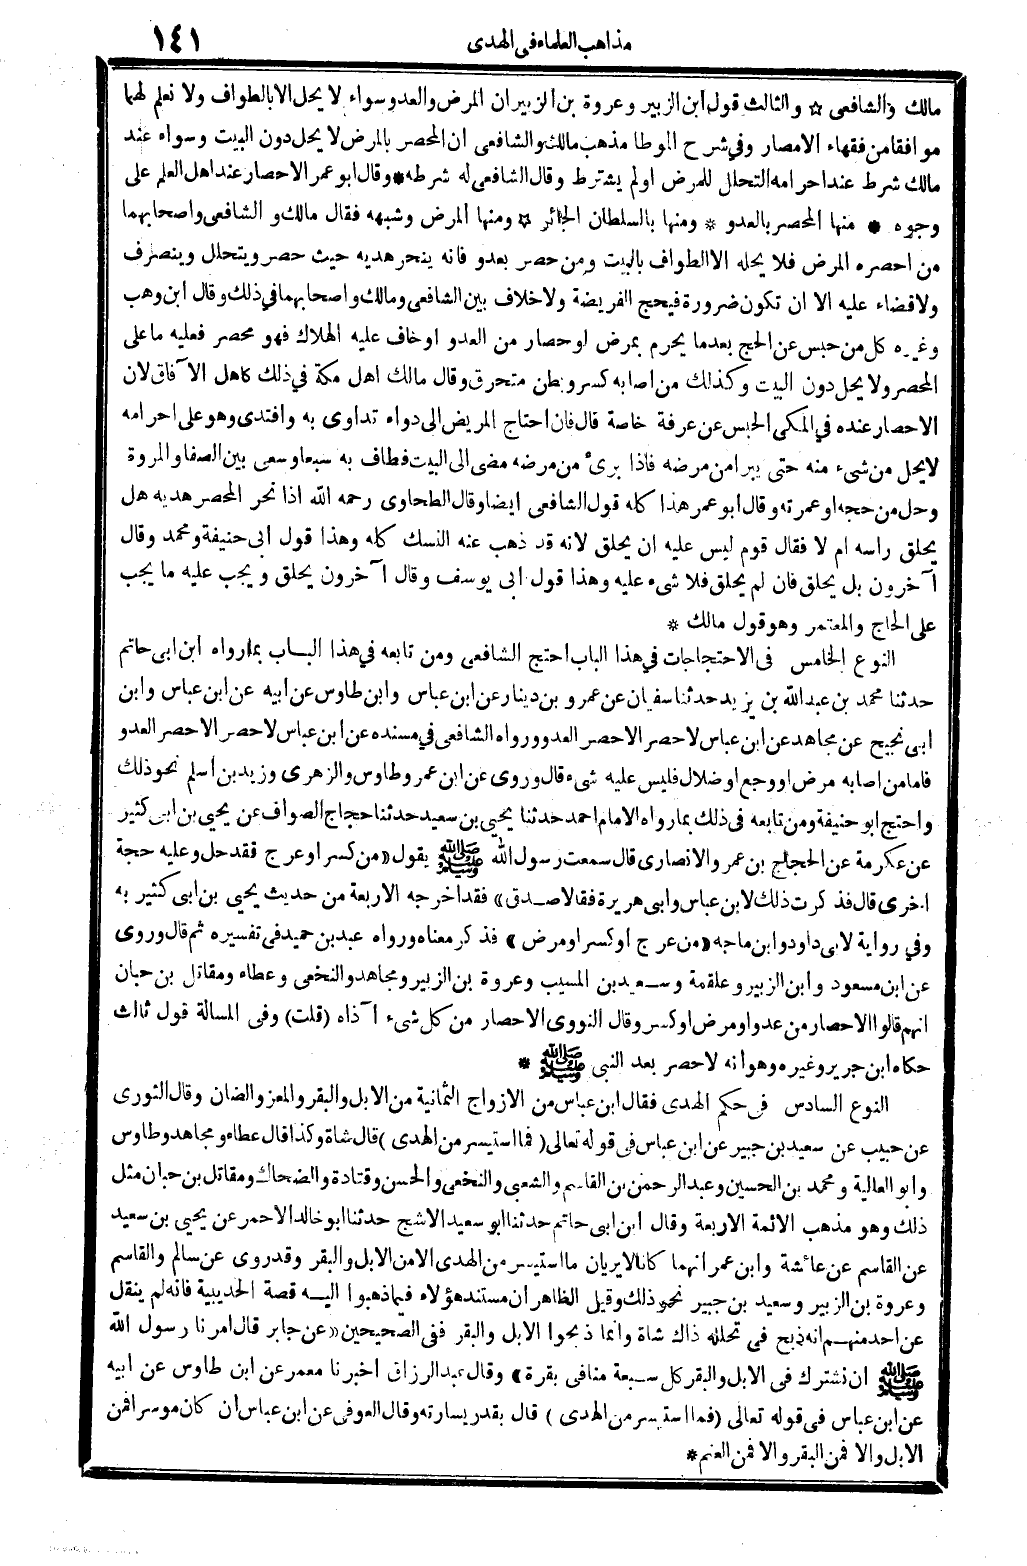 مذاهب العلماء فى الهدى ١٤١
مالك والشافعى ☆ والثالث قول ابن الزبير وعروة بن الزبير ان المرض والعدو سواء لا يحل الا بالطواف ولا نعلم لهما
موافقا من فقهاء الامصار وفي شرح الموطا مذهب مالك والشافعى ان المحصر بالمرض لا يحل دون البيت وسواء عند
مالك شرط عند احرامه التحلل للمرض او لم يشترط وقال الشافعى له شرطه * وقال ابو عمر الاحصار عند اهل العلم على
وجوه * منها المحصر بالعدو * ومنها بالسلطان الجائر ☆ ومنها المرض وشبهه فقال مالك و الشافعى واصحابهما
من احصره المرض فلا يحله الا الطواف بالبيت ومن حصر بعدو فانه ينحر هديه حيث حصر ويتحلل وينصرف
ولا قضاء عليه الا ان تكون ضرورة فيحج الفريضة ولا خلاف بين الشافعى ومالك واصحابهما في ذلك وقال ابن وهب
وغيره كل من حبس عن الحج بعدما يحرم بمرض او حصار من العدو او خاف عليه الهلاك فهو محصر فعليه ما على
المحصر ولا يحل دون البيت وكذلك من اصابه كسر وبطن متحرق وقال مالك اهل مكة في ذلك كاهل الآفاق لان
الاحصار عنده في المكى الحبس عن عرفة خاصة قال فان احتاج المريض الى دواء تداوى به وافتدى وهو على احرامه
لا يحل من شىء منه حتى يبرا من مرضه فاذا برئ من مرضه مضى الى البيت فطاف به سبعا وسعى بين الصفا والمروة
وحل من حجه او عمرته وقال ابو عمر هذا كله قول الشافعى ايضا وقال الطحاوى رحمه الله اذا نحر المحصر هديه هل
يحلق راسه ام لا فقال قوم ليس عليه ان يحلق لانه قد ذهب عنه النسك كله وهذا قول ابى حنيفة ومحمد وقال
آخرون بل يحلق فان لم يحلق فلا شىء عليه وهذا قول ابى يوسف وقال آخرون يحلق و يجب عليه ما يجب
على الحاج والمعتمر وهو قول مالك *
النوع الخامس فى الاحتجاجات في هذا الباب احتج الشافعى ومن تابعه في هذا الباب بمارواه ابن ابى حاتم
حدثنا محمد بن عبد الله بن يزيد حدثنا سفيان عن عمرو بن دينار عن ابن عباس وابن طاوس عن ابيه عن ابن عباس وابن
ابى نجيح عن مجاهد عن ابن عباس لا حصر الا حصر العدو ورواه الشافعى في مسنده عن ابن عباس لا حصر الا حصر العدو
فامامن اصابه مرض او وجع او ضلال فليس عليه شىء قال وروى عن ابن عمر وطاوس والزهرى وزيد بن اسلم نحو ذلك
واحتج ابو حنيفة ومن تابعه فى ذلك بمارواه الامام احمد حدثنا يحيى بن سعيد حدثنا حجاج الصواف عن يحيى بن ابى كثير
عن عكرمة عن الحجاج بن عمرو الانصارى قال سمعت رسول الله ﷺ يقول «من كسر او عرج فقد حل وعليه حجة
اخرى قال فذكرت ذلك لابن عباس وابى هريرة فقالا صدق» فقد اخرجه الاربعة من حديث يحيى بن ابى كثير به
وفي رواية لابى داود وابن ماجه «من عرج او كسر او مرض» فذكر معناه ورواه عبد بن حميد فى تفسيره ثم قال وروى
عن ابن مسعود وابن الزبير وعلقمة وسعيد بن المسيب وعروة بن الزبير ومجاهد والنخعى وعطاء ومقاتل بن حبان
انهم قالوا الاحصار من عدو او مرض او كسر وقال النووى الاحصار من كل شىء آذاه (قلت) وفى المسالة قول ثالث
حكاه ابن جرير وغيره وهو انه لا حصر بعد النبى ﷺ *
النوع السادس فى حكم الهدى فقال ابن عباس من الازواج الثمانية من الابل والبقر والمعز والضان وقال الثورى
عن حبيب عن سعيد بن جبير عن ابن عباس فى قوله تعالى (فما استيسر من الهدى) قال شاة وكذا قال عطاء ومجاهد وطاوس
وابو العالية ومحمد بن الحسين وعبد الرحمن بن القاسم والشعبى والنخعى والحسن وقتادة والضحاك ومقاتل بن حبان مثل
ذلك وهو مذهب الائمة الاربعة وقال ابن ابى حاتم حدثنا ابو سعيد الاشج حدثنا ابو خالد الاحمر عن يحيى بن سعيد
عن القاسم عن عائشة وابن عمر انهما كانا لا يريان ما استيسر من الهدى الا من الابل والبقر وقد روى عن سالم والقاسم
وعروة بن الزبير وسعيد بن جبير نحو ذلك وقيل الظاهر ان مستند هؤلاء فيما ذهبوا اليه قصة الحديبية فانه لم ينقل
عن احد منهم انه ذبح فى تحلله ذاك شاة وانما ذبحوا الابل والبقر ففى الصحيحين «عن جابر قال امرنا رسول الله
ﷺ ان نشترك فى الابل والبقر كل سبعة منا فى بقرة» وقال عبد الرزاق اخبرنا معمر عن ابن طاوس عن ابيه
عن ابن عباس فى قوله تعالى (فما استيسر من الهدى) قال بقدر يسارته وقال العوفى عن ابن عباس ان كان موسرا فمن
الابل والا فمن البقر والا فمن الغنم *